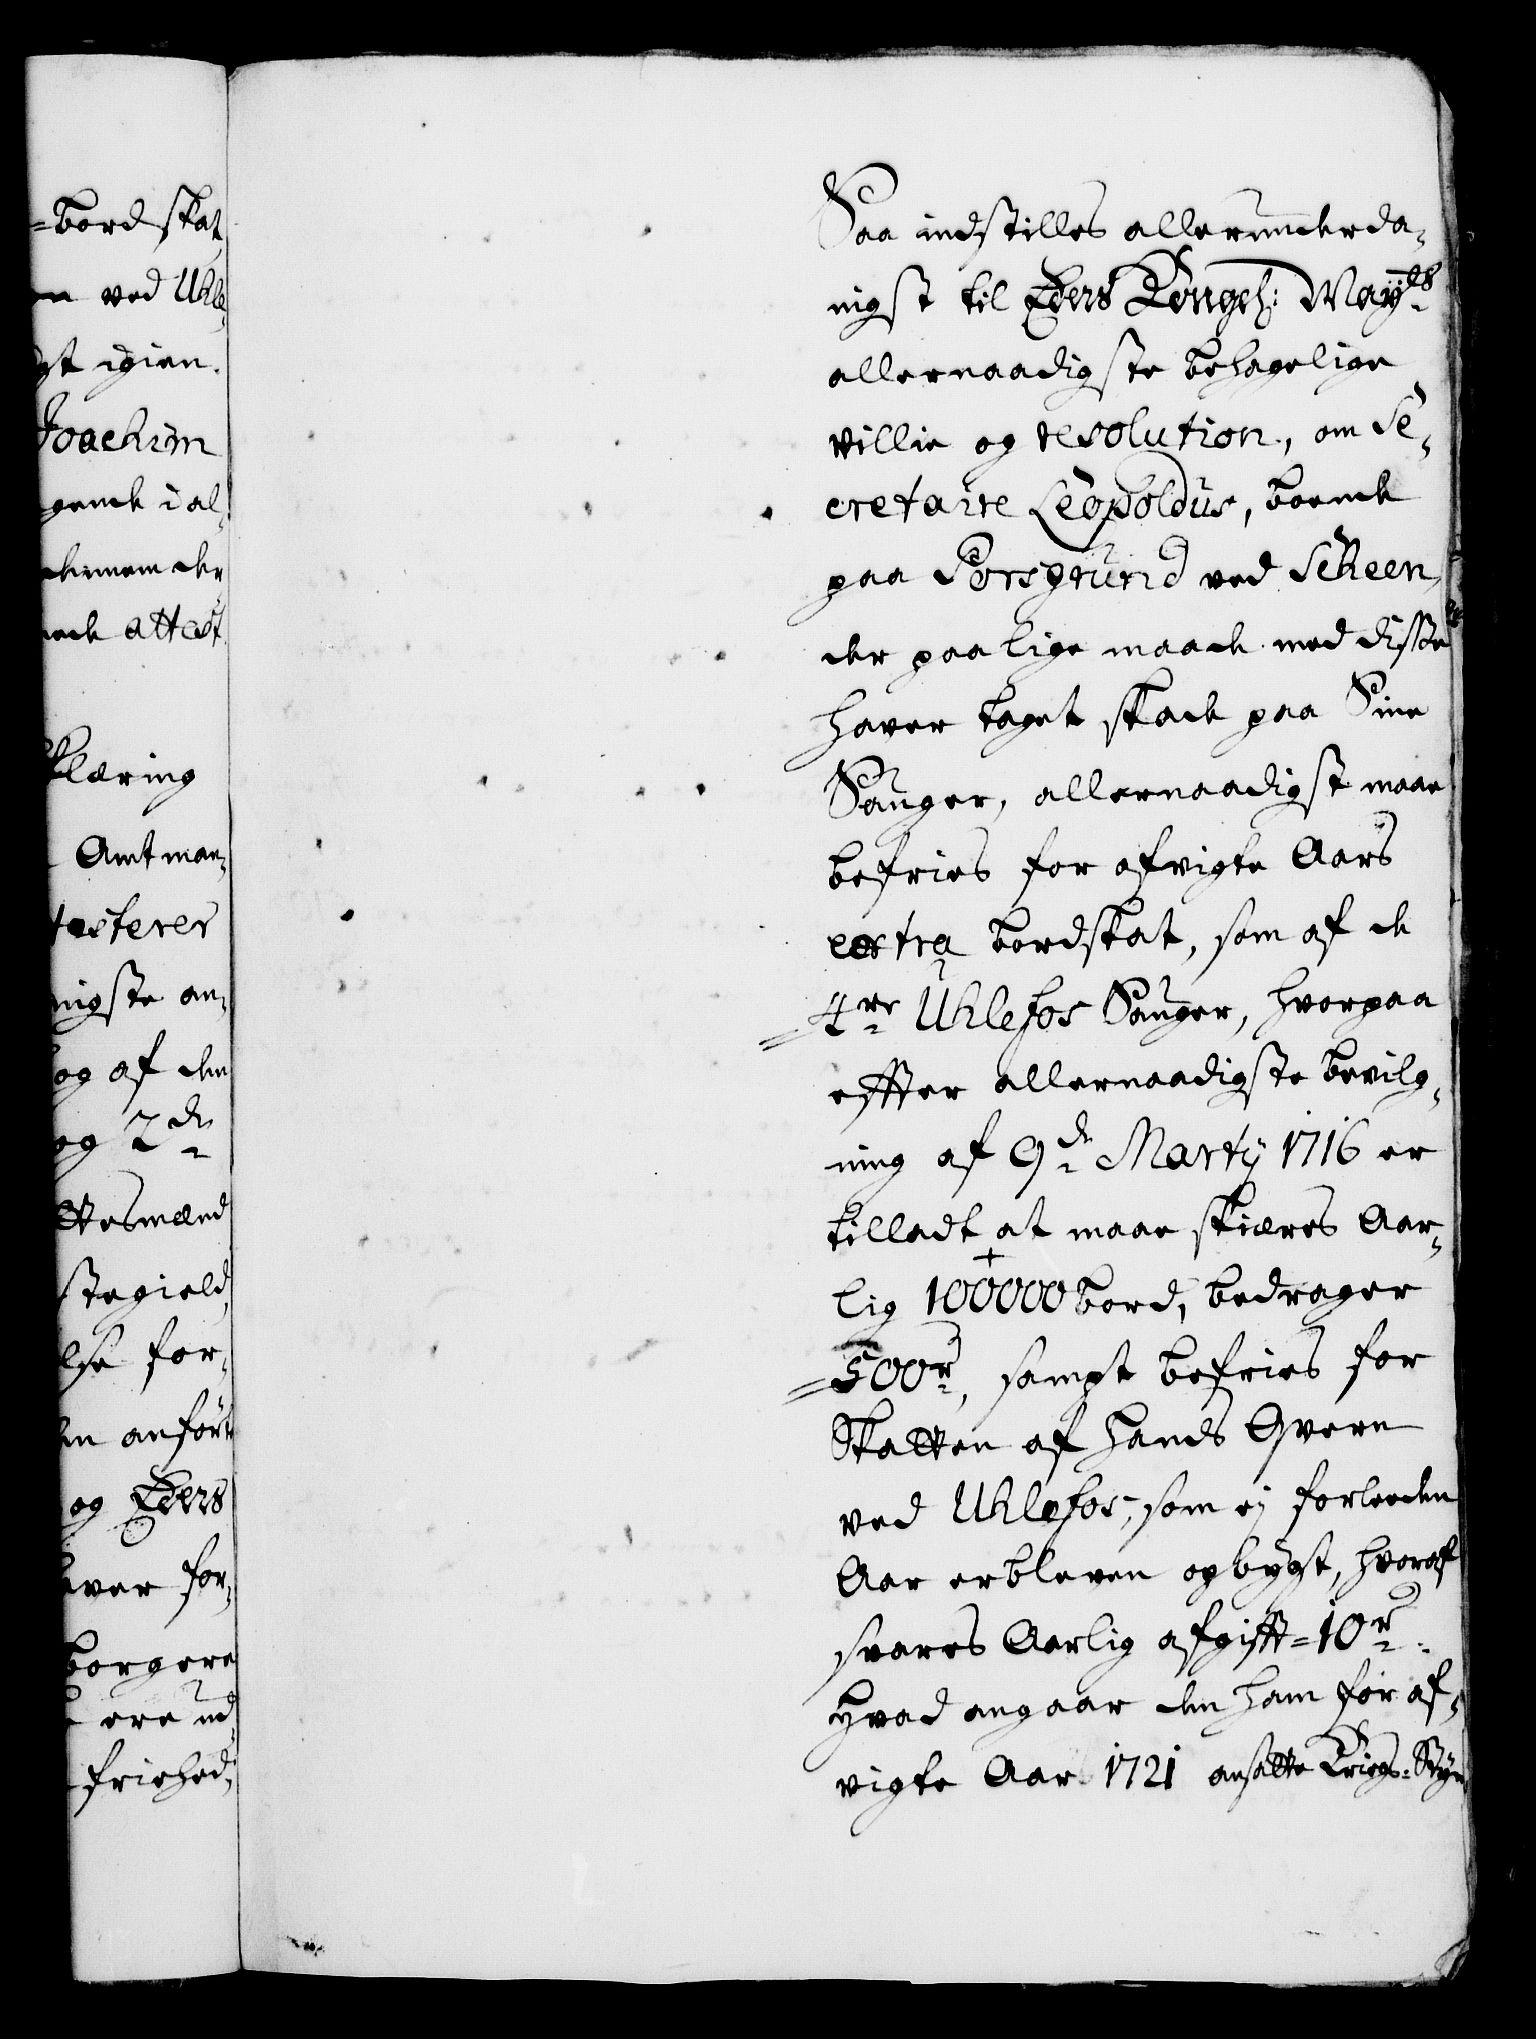 =bord skat
ved Uhle¬
igien.
Joachim
attest
Amtman¬
og af den
og 2de
og Eders
for¬
borgere
ere ud¬
friehed¬
Saa indstilles allerunderda¬
nigst til Eders Kongel: Mayts
allernaadigste behagelige
villie og resolution, om Se¬
cretaire Leopoldus, boende
paa Porsgrund ved Scheen,
der paa lige maade med disse
haver taget skade paa Sine
Sauger, allernaadigst maae
befries for afvigte Aars
extra bordskat, som af de
4re Uhlefos Sauger, hvorpaa
effter allernaadigste bevilg¬
ning af 9de Marty 1716 er
tilladt at maae skiæres Aar¬
lig 100000 bord, bedrager
500r, sampt befries for
Skatten af hands Qvern
ved Uhlefos, som ej forleeden
Aar er bleven opbygt, hvoraf
svares Aarlig afgifft = 10r.
Hvad angaar den ham for af¬
vigte Aar 1721 ansatte Kriegs-Styr